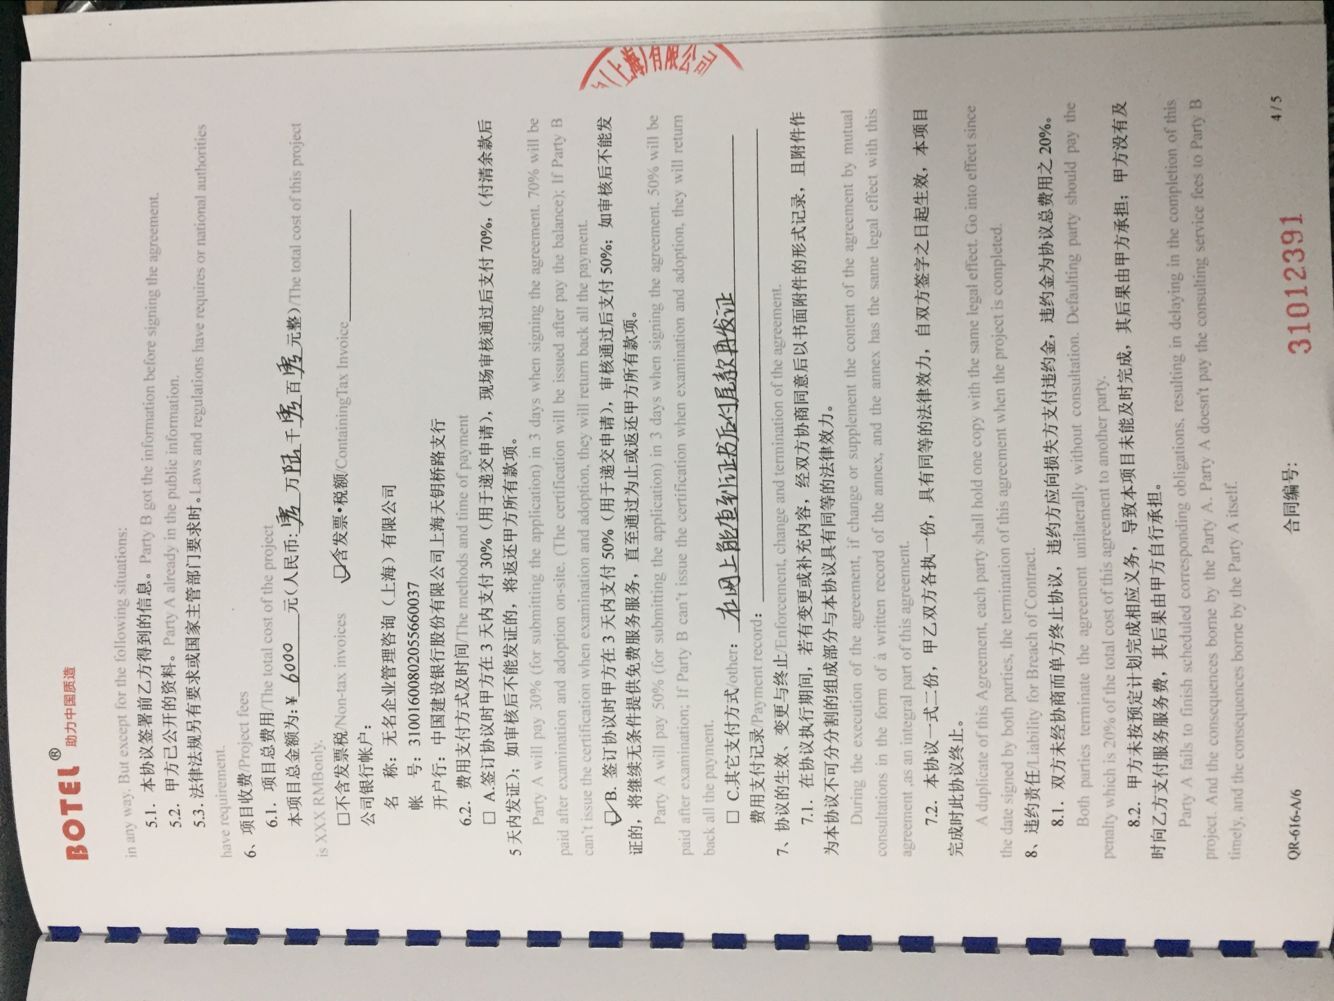 BOTEL® 助力中国质造
in any way. But except for the following situations:
5.1．本协议签署前乙方得到的信息。Party B got the information before signing the agreement.
5.2．甲方已公开的资料。Party A already in the public information.
5.3. 法律法规另有要求或国家主管部门要求时。Laws and regulations have requires or national authorities
have requirement.
6、项目收费/Project fees
6.1．项目总费用/The total cost of the project
本项目总金额为:￥ 6000 元(人民币: 零 万 陆 千 零 百 零 元整)/The total cost of this project
is XXX RMBonly.
□不含发票税/Non-tax invoices ☑含发票•税额/ContainingTax Invoice
公司银行帐户：
名 称：无名企业管理咨询（上海）有限公司
帐 号：31001600802055660037
开户行：中国建设银行股份有限公司上海天钥桥路支行
6.2．费用支付方式及时间/The methods and time of payment
□ A.签订协议时甲方在 3 天内支付 30%（用于递交申请），现场审核通过后支付 70%，（付清余款后
5 天内发证）；如审核后不能发证的，将返还甲方所有款项。
Party A will pay 30% (for submitting the application) in 3 days when signing the agreement. 70% will be
paid after examination and adoption on-site. (The certification will be issued after pay the balance); If Party B
can't issue the certification when examination and adoption, they will return back all the payment.
☑ B. 签订协议时甲方在 3 天内支付 50%（用于递交申请），审核通过后支付 50%；如审核后不能发
证的，将继续无条件提供免费服务服务，直至通过为止或返还甲方所有款项。
Party A will pay 50% (for submitting the application) in 3 days when signing the agreement. 50% will be
paid after examination; If Party B can't issue the certification when examination and adoption, they will return
back all the payment.
□ C.其它支付方式/other： 在网上能查到证书后付尾款再发证
费用支付记录/Payment record：
7、协议的生效、变更与终止/Enforcement, change and termination of the agreement.
7.1．在协议执行期间，若有变更或补充内容，经双方协商同意后以书面附件的形式记录，且附件作
为本协议不可分分割的组成部分与本协议具有同等的法律效力。
During the execution of the agreement, if change or supplement the content of the agreement by mutual
consultations in the form of a written record of the annex, and the annex has the same legal effect with this
agreement ,as an integral part of this agreement.
7.2．本协议一式二份，甲乙双方各执一份，具有同等的法律效力，自双方签字之日起生效，本项目
完成时此协议终止。
A duplicate of this Agreement, each party shall hold one copy with the same legal effect. Go into effect since
the date signed by both parties, the termination of this agreement when the project is completed.
8、违约责任/Liability for Breach of Contract.
8.1．双方未经协商而单方终止协议，违约方应向损失方支付违约金，违约金为协议总费用之 20%。
Both parties terminate the agreement unilaterally without consultation. Defaulting party should pay the
penalty which is 20% of the total cost of this agreement to another party.
8.2．甲方未按预定计划完成相应义务，导致本项目未能及时完成，其后果由甲方承担；甲方没有及
时向乙方支付服务服务费，其后果由甲方自行承担。
Party A fails to finish scheduled corresponding obligations, resulting in delaying in the completion of this
project. And the consequences borne by the Party A. Party A doesn't pay the consulting service fees to Party B
timely, and the consequences borne by the Party A itself.
(上海)有限公司
4 / 5
QR-616-A/6 合同编号: 31012391